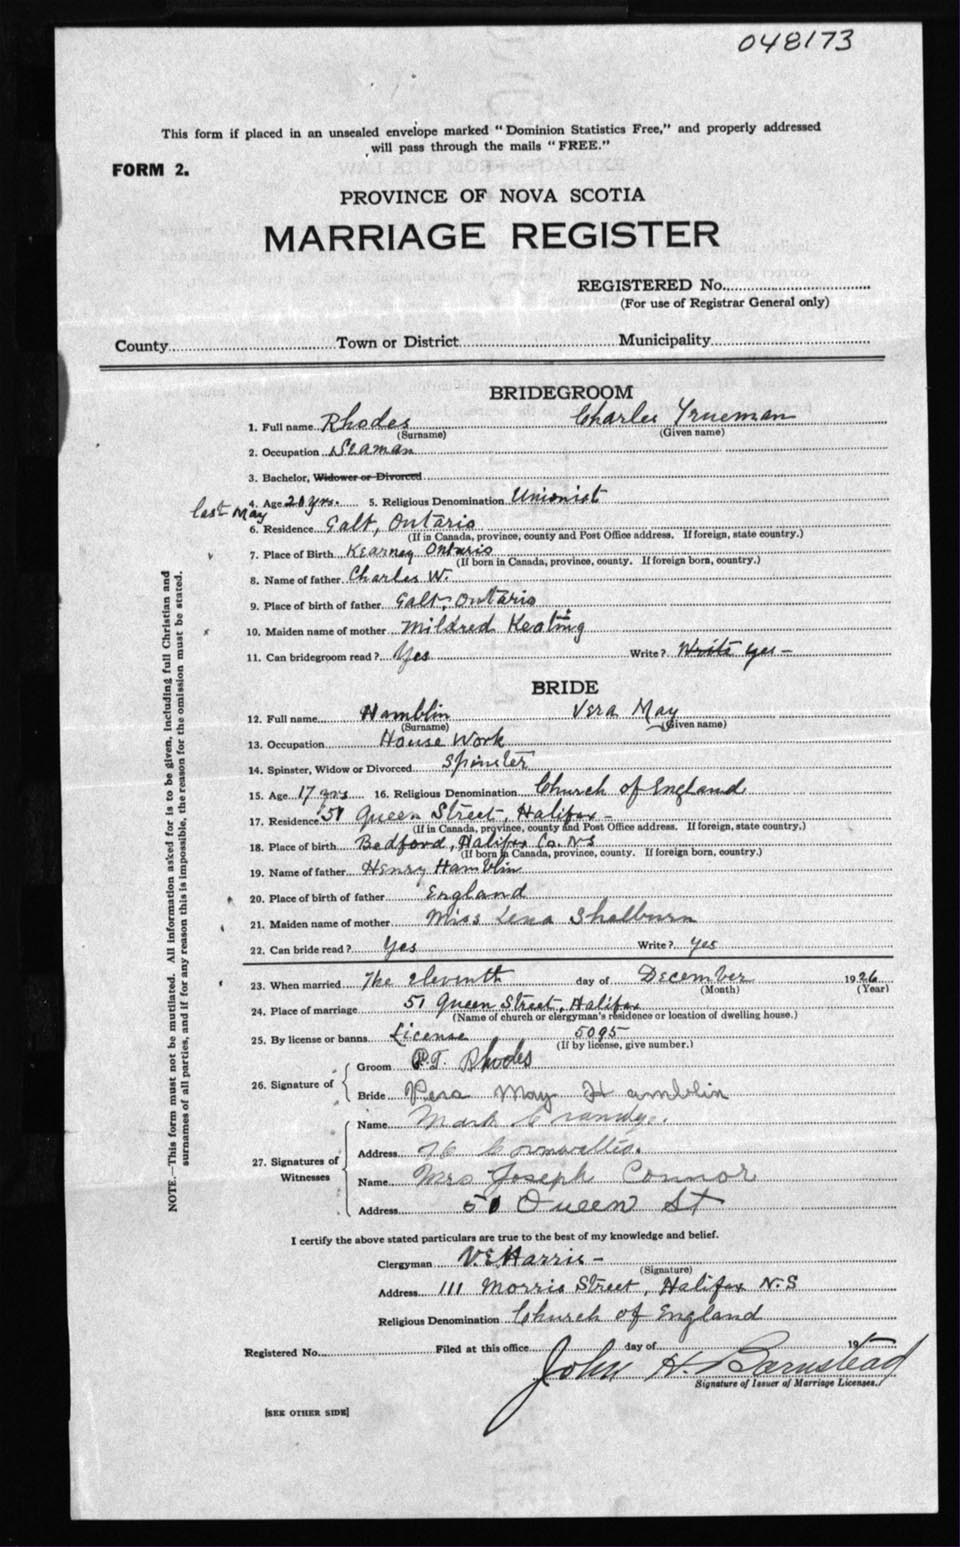 048173
This form if placed in an unsealed envelope marked "Dominion Statistics Free," and properly addressed
will pass through the mails "FREE."
FORM 2.
PROVINCE OF NOVA SCOTIA
MARRIAGE REGISTER
REGISTERED No.
(For use of Registrar General only)
County Town or District Municipality
BRIDEGROOM
1. Full name Rhodes Charles Trueman
(Surname) (Given name)
2. Occupation Seaman
3. Bachelor, Widower or Divorced
4. Age 20 yrs. 5. Religious Denomination Unionist
last May
6. Residence Galt, Ontario
(If in Canada, province, county and Post Office address. If foreign, state country.)
7. Place of Birth Kearney Ontario
(If born in Canada, province, county. If foreign born, country.)
8. Name of father Charles W.
9. Place of birth of father Galt, Ontario
10. Maiden name of mother Mildred Keating
11. Can bridegroom read? Yes Write? Write yes -
BRIDE
12. Full name Hamblin Vera May
(Surname) (Given name)
13. Occupation House Work
14. Spinster, Widow or Divorced Spinster
15. Age 17 yrs 16. Religious Denomination Church of England
17. Residence 51 Queen Street, Halifax -
(If in Canada, province, county and Post Office address. If foreign, state country.)
18. Place of birth Bedford, Halifax Co. N S
(If born in Canada, province, county. If foreign born, country.)
19. Name of father Henry Hamblin
20. Place of birth of father England
21. Maiden name of mother Miss Lena Shalburn
22. Can bride read? Yes Write? yes
23. When married The eleventh day of December 1926
(Month) (Year)
24. Place of marriage 51 Queen Street, Halifax
(Name of church or clergyman's residence or location of dwelling house.)
25. By license or banns License 5095
(If by license, give number.)
26. Signature of
Groom C.T. Rhodes
Bride Vera May Hamblin
27. Signatures of Witnesses
Name Mark
Address 76 Cornwallis.
Name Mrs Joseph Connor
Address 51 Queen St
I certify the above stated particulars are true to the best of my knowledge and belief.
Clergyman V. E. Harris -
(Signature)
Address 111 Morris Street, Halifax N.S
Religious Denomination Church of England
Registered No. Filed at this office day of 19
John H. Barnstead
Signature of Issuer of Marriage Licenses.
[SEE OTHER SIDE]
NOTE.—This form must not be mutilated. All information asked for is to be given, including full Christian and
surnames of all parties, and if for any reason this is impossible, the reason for the omission must be stated.